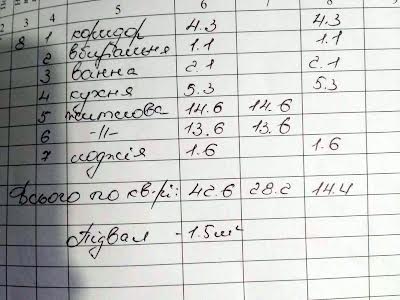 2 3 4 5 6 7 8
8 1 коридор 4.3 4.3
2 вбиральня 1.1 1.1
3 ванна 2.1 2.1
4 кухня 5.3 5.3
5 житлова 14.6 14.6
6 -//- 13.6 13.6
7 лоджія 1.6 1.6
Всього по кв-рі: 42.6 28.2 14.4
Підвал - 1.5 м²